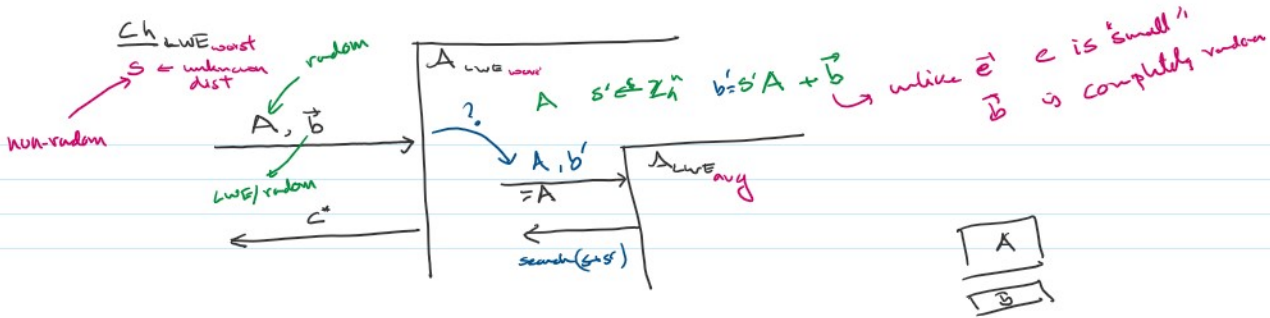 Ch LWE worst
S ← unknown dist
non-random
random
A, b⃗
LWE/random
c*
A LWE worst
A s' ←$ Z_n^n b' = s'A + b⃗
unlike e⃗ e is "small"
b⃗ is completely random
?
A, b'
= A
search(s+s')
A LWE avg
A
b⃗